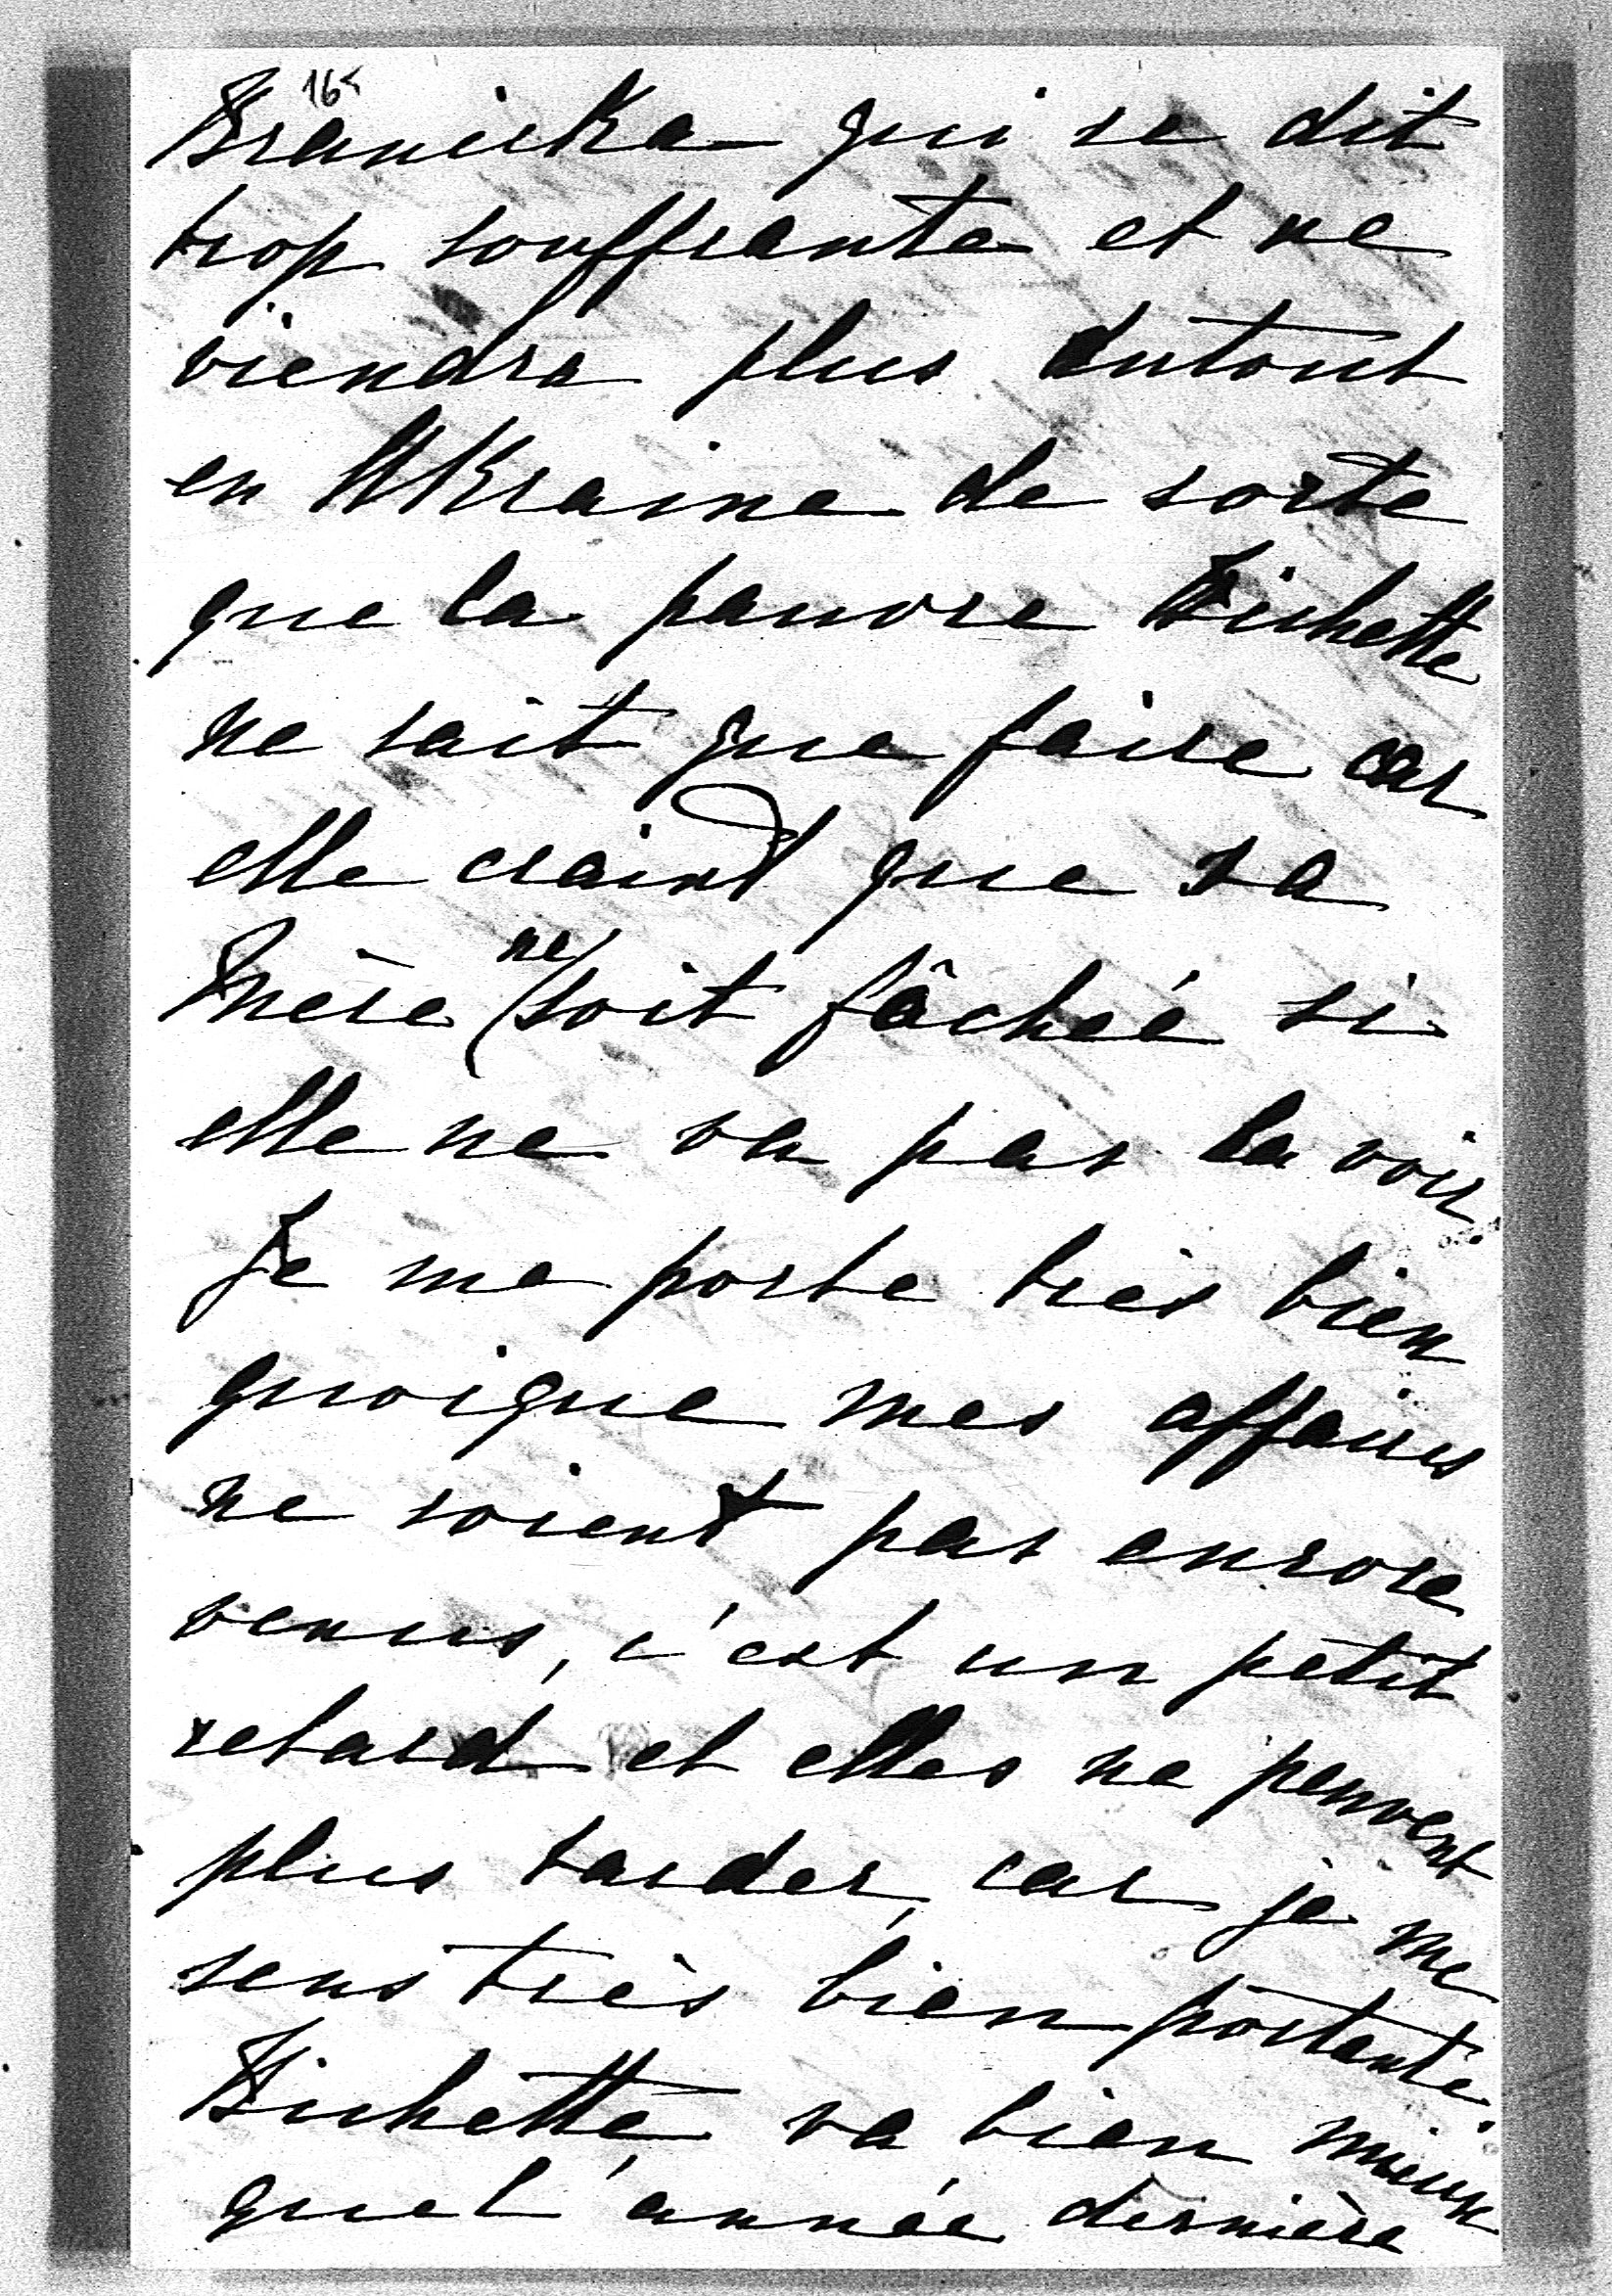 165
Branicka qui se dit
trop souffrante et ne
viendra plus dutout
en Ukraine de sorte
que la pauvre Bichette
ne sait que faire car
elle craint que sa
Mère ne soit fâchée si
elle ne va pas la voir
Je me porte très bien
quoique mes affaires
ne soient pas encore
venus, c'est un petit
retard et elles ne peuvent
plus tarder, car je me
sens très bien portante.
Bichette va bien mieux
que l'année dernière